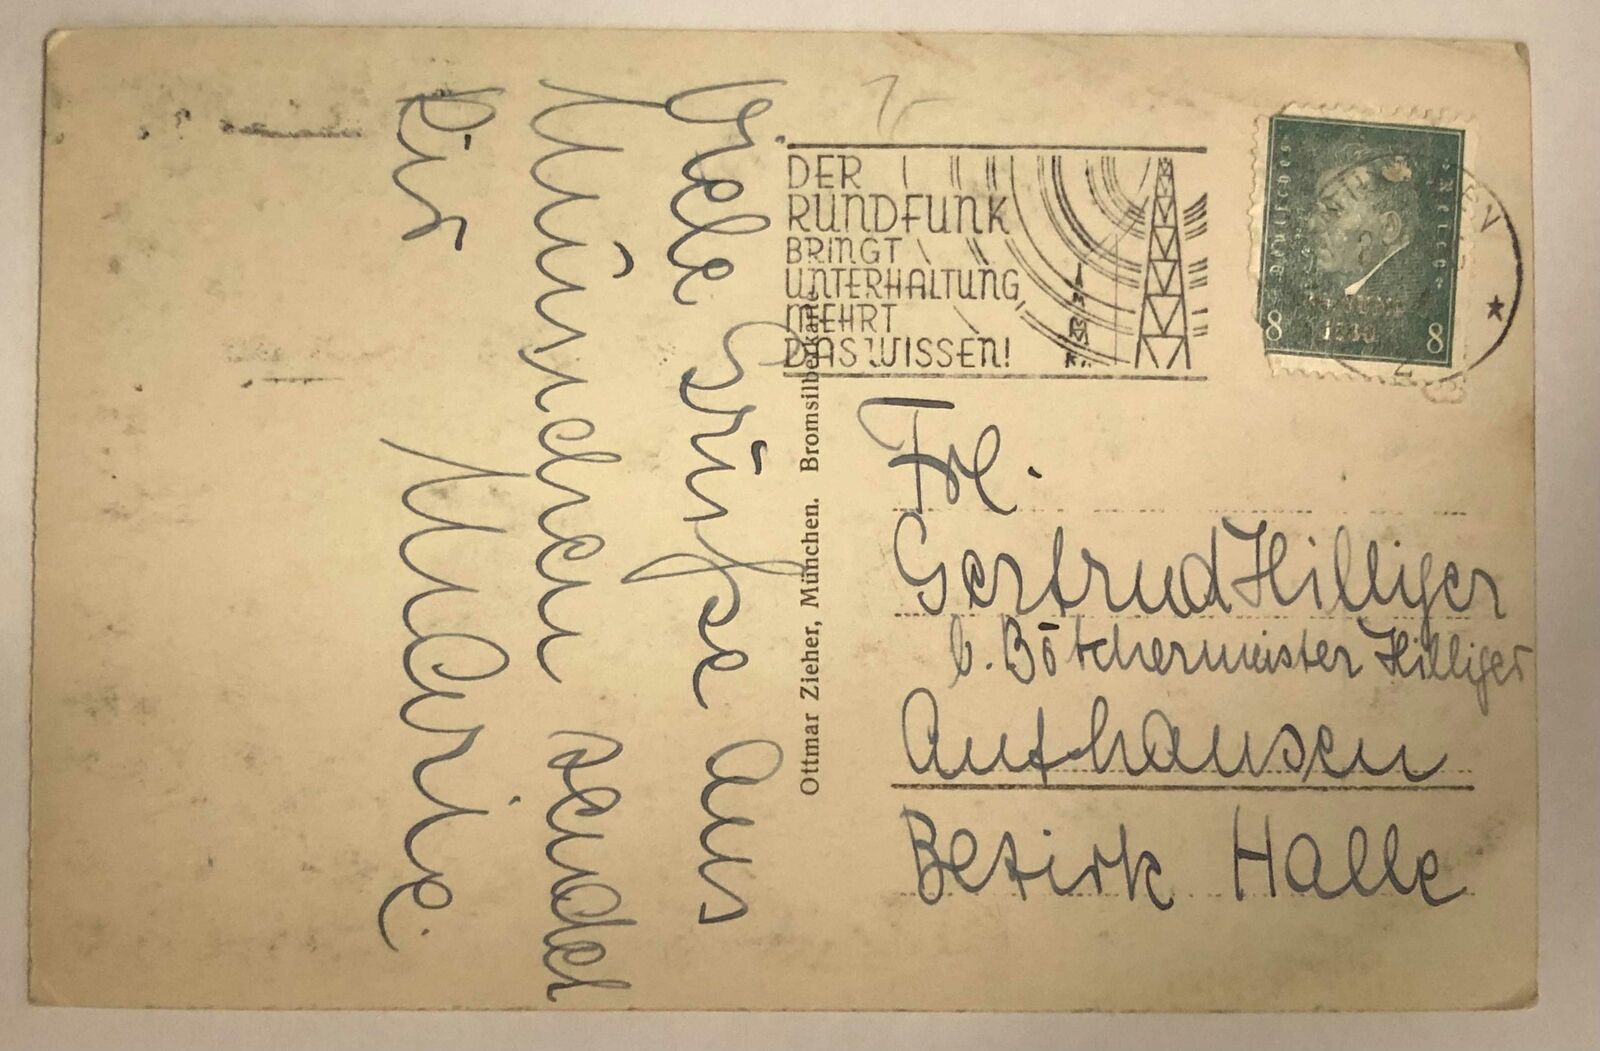 Viele Grüße aus
München sendet
Dir
Marie.
DER
RUNDFUNK
BRINGT
UNTERHALTUNG
MEHRT
DAS WISSEN!
Deutsches Reich
30. JUNI
1930
8 8
Ottmar Zieher, München. Bromsilberkarte
Frl.
Gertrud Hilliger
b. Böttchermeister Hilliger
Authausen
Bezirk Halle